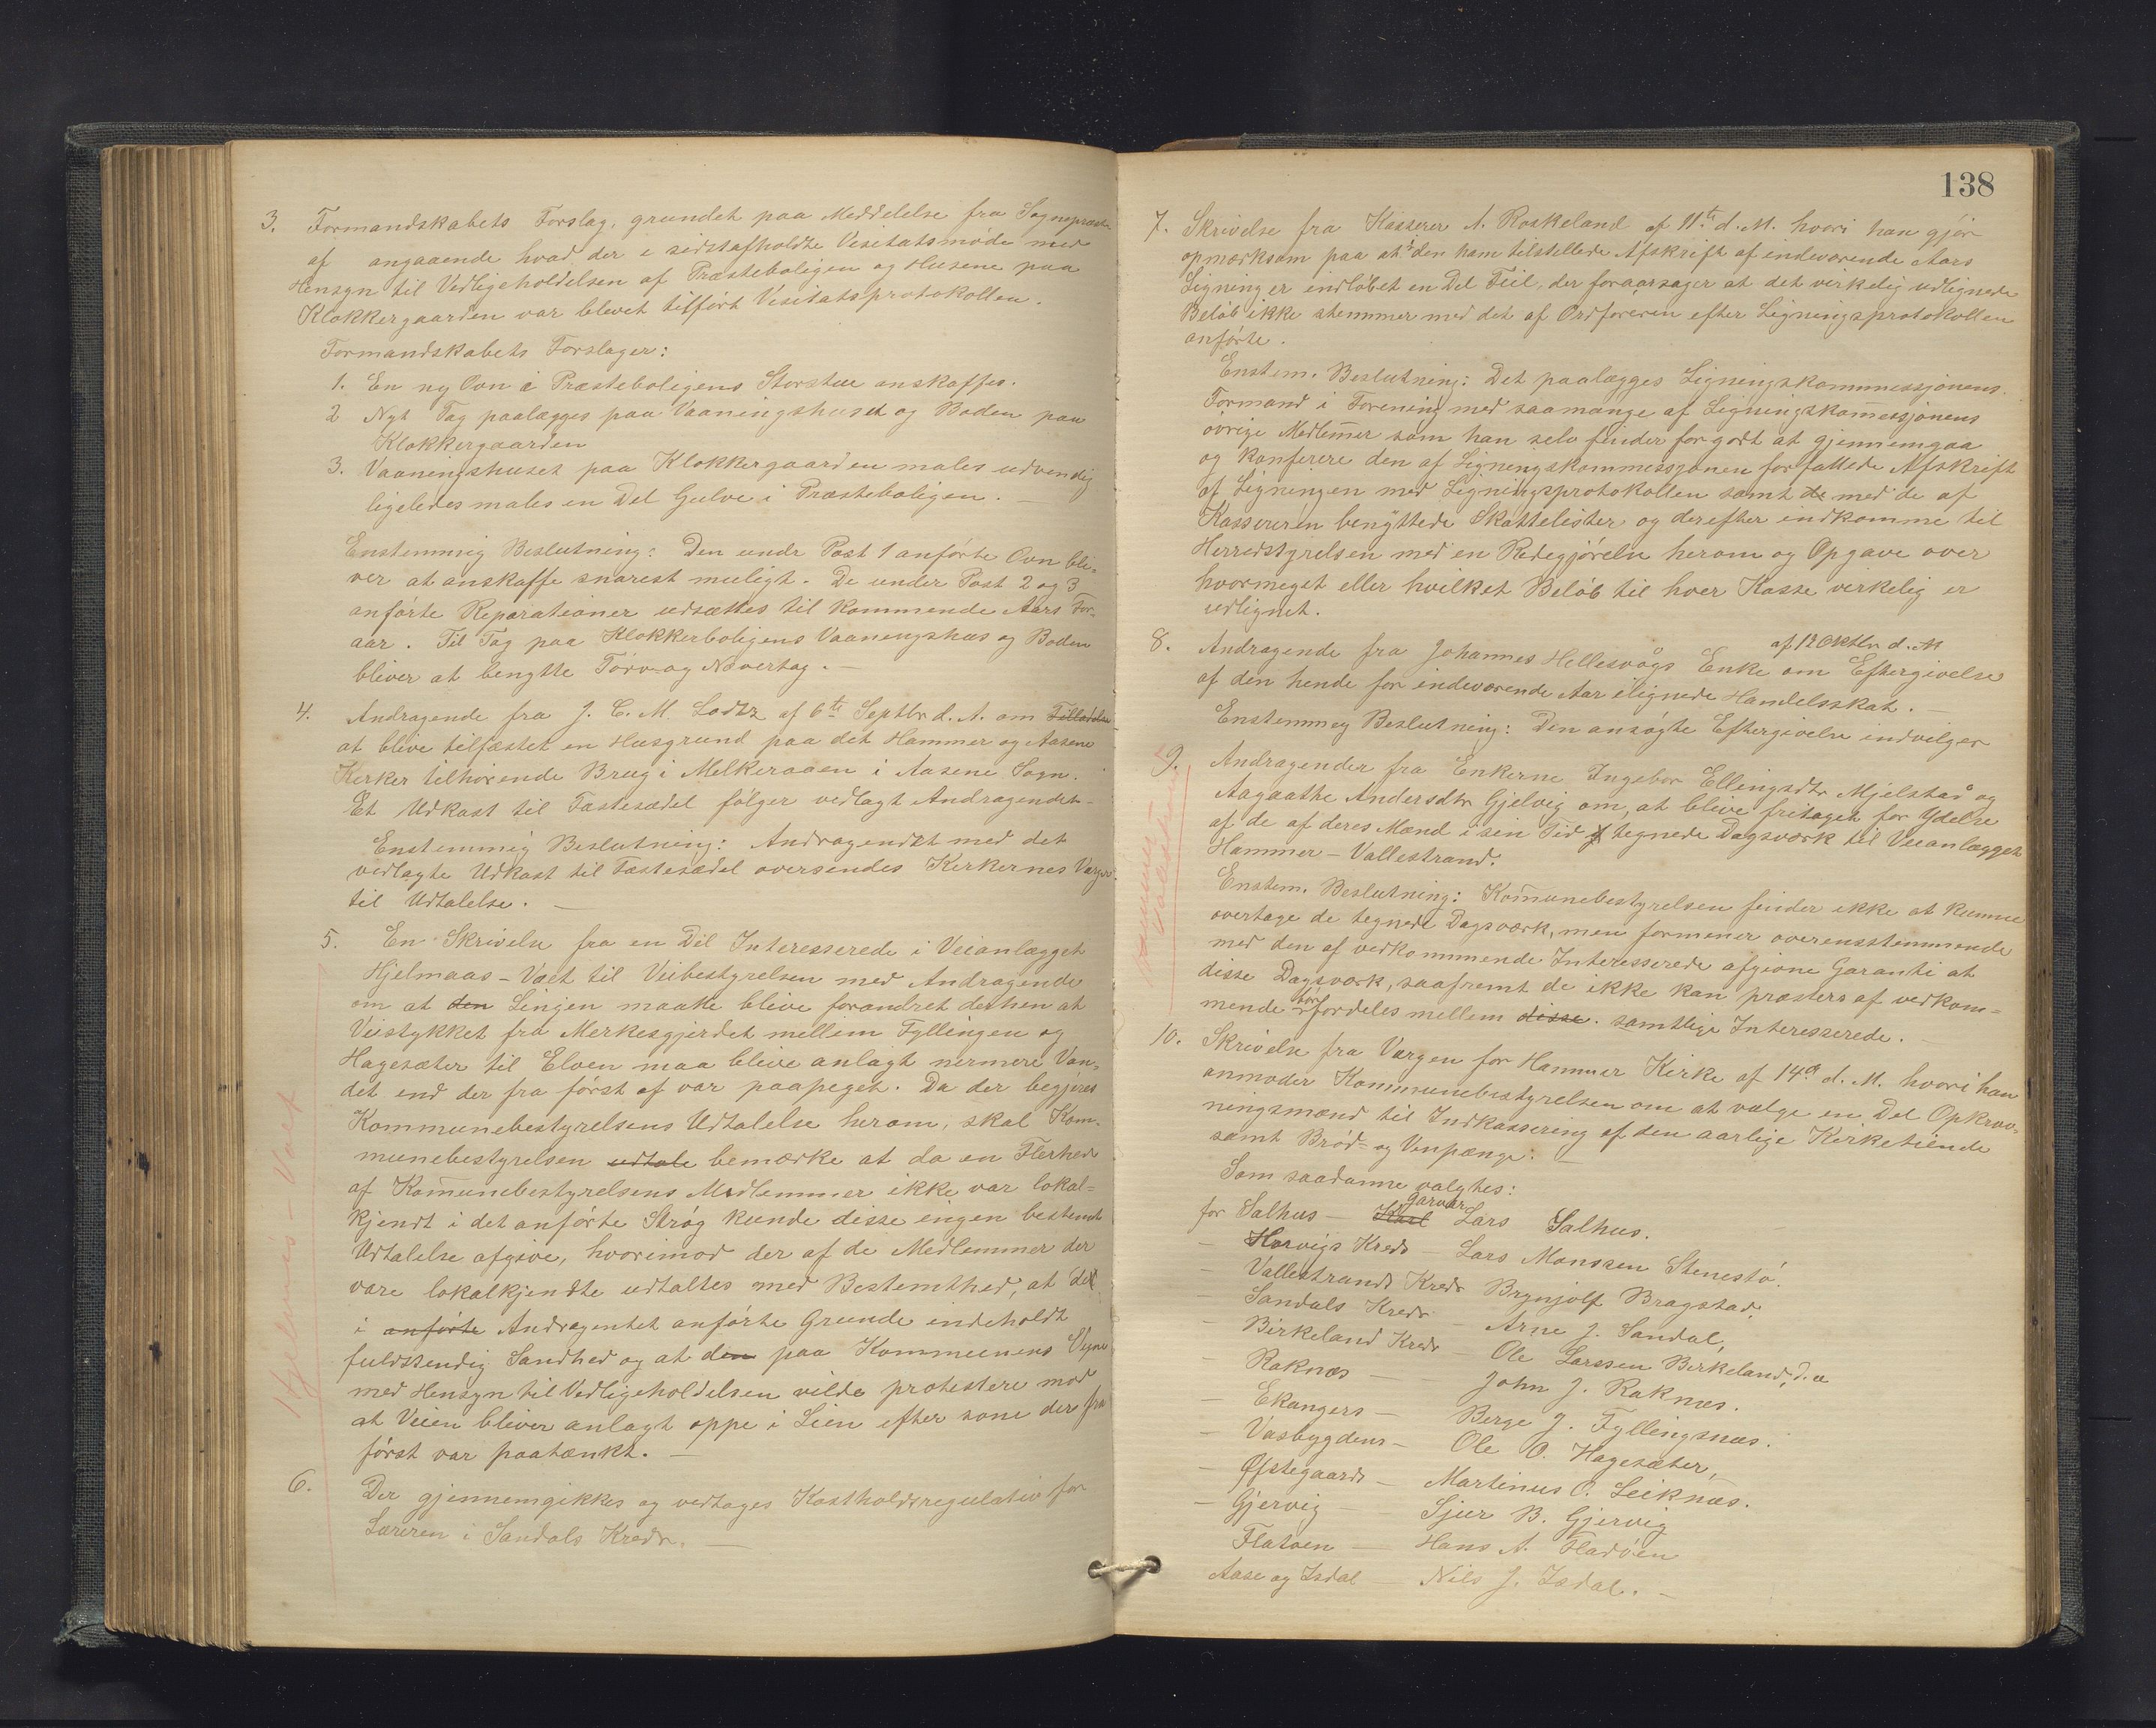 3. Formandskabets Forslag, grundet paa Meddelelse fra Sognepræsten
af angaaende hvad der i sidstafholdte Visitatsmøde med
Hensyn til Vedligeholdelsen af Præsteboligen og Husene paa
Klokkergaarden var blevet tilført Visitatsprotokollen.
Formandskabets Forslager:
1. En ny Ovn i Præsteboligens Storstue anskaffes.
2 Nyt Tag paalægges paa Vaaningshuset og Boden paa
Klokkergaarden
3. Vaaningshuset paa Klokkergaarden males udvendig
ligeledes males en Del Gulve i Præsteboligen. —
Enstemmig Beslutning: Den undr Post 1 anførte Ovn bli-
ver at anskaffe snarest muligt. De under Post 2 og 3
anførte Reparationer udsættes til kommende Aars For-
aar. Til Tag paa Klokkerboligens Vaaningshus og Boden
bliver at bengtte Torv og Nævertag. —
4. Andragende fra J. C. M. Lodtz af 6te Septbr d. A. om Tilladelse
at blive tilfæstet en Husgrund paa det Hammer og Aasene
Kirker tilhørende Brug i Melkeraaen i Aasene Sogn.
Et Udkast til Fæstesædel følger vedlagt Andragendet.
Enstemmig Beslutning: Andragendet med det
vedlagte Udkast til Fæstesædel oversendes Kirkernes Værger
til Udtalelse. —
5. En Skrivelse fra en Del Interesserede i Veianlægget
Hjelmaas - Vaet til Veibestyrelsen med Andragende
om at den Linjen maatte blive forandret derhen at
Veistykket fra Merkesgjerdet mellem Fyllingen og
Hagesæter til Elven maa blive anlagt nermere Van-
det end der fra først af var paapeget. Da der begjæres
Kommunebestyrelsens Udtalelse herom, skal Kom-
munebestyrelsen udtale bemærke at da en Flerhed
af Kom̄unebestyrelsens Medlemmer ikke var lokal-
kjendt i det anførte Strøg kunde disse ingen bestemt
Udtalelse afgive, hvorimod der af de Medlemmer der
vare lokalkjendte udtaltes med Bestemthed, at det
i anførte Andragentet anførte Grunde indeholdt
fuldstendig Sandhed og at den paa Kommunens Vegne
med Hensyn til Vedligeholdelsen vilde protestere mod
at Veien bliver anlagt oppe i Lien efter som der fra
først var paatænkt. —
Hjelmås - Vaet
6. Der gjennemgikkes og vedtages Kostholdsregulativ for
Læreren i Sandals Kreds. —
138
7. Skrivelse fra Kasserer A. Roskeland af 11te d. M. hvori han gjør
opmærksom paa at i den ham tilstellede Afskrift af indeværende Aars
Ligning er indløbet en Del Feil, der foraarsager at det virkelig udlignede
Beløb ikke stemmer med det af Ordføreren efter Ligningsprotokollen
anførte.
Enstem. Beslutning: Det paalægges Ligningskommissjonens
Formand i Forening med saamange af Ligningskom̄issjonens
øvrige Medlem̄er som han selv finder for godt at gjennemgaa
og konferere den af Ligningskommissjonen forfattede Afskrift
af Ligningen med Ligningsprotokollen samt de med de af
Kassereren benyttede Skattelister og derefter indkomme til
Herredstyrelsen med en Redegjørelse herom og Opgave over
hvormeget eller hvilket Beløb til hver Kasse virkelig er
udlignet.
af 12 Oktbr d. M
8. Andragende fra Johannes Hellesvågs Enke om Eftergivelse
af den hende for indeværende Aar ilignede Handelsskat. —
Enstemmig Beslutning: Den ansøgte Eftergivelse indvilges
9. Andragender fra Enkerne Ingebor Ellingsdtr Mjelstad og
Aagaathe Andersdtr Gjelvig om, at blive fritaget for Ydelse
af de af deres Mænd i sin Tid tegnede Dagsværk til Veianlægget
Hammer - Vallestrand.
Hammer - Vallestrand
Enstem. Beslutning: Kom̄unebestyrelsen finder ikke at kunne
overtage de tegnede Dagsværk, men formener overensstemmende
med den af vedkommende Interesserede afgivne Garanti at
disse Dagsværk, saafremt de ikke kan præsteres af vedkom-
mende bør fordeles mellem disse. samtlige Interesserede. —
10. Skrivelse fra Værgen for Hammer Kirke af 14de d. M. hvori han
anmoder Kommunebestyrelsen om at vælge en Del Opkræv-
ningsmænd til Indkassering af den aarlige Kirketiende
samt Brød- og Vinpænge. —
Som saadanne valgtes:
for Salhus — Karl Garver Lars Salhus.
— Horvigs Kreds — Lars Monssen Stenestø.
— Vallestrands Kreds Brynjolf Bragstad.
— Sandals Kreds — Arne J. Sandal,
— Birkeland Kreds — Ole Larssen Birkeland, d. æ
— Raknæs — John J. Raknæs.
— Ekangers — Berge J. Fyllingsnæs.
— Vasbygdens — Ole O. Hagesæter,
— Øfstegaards — Martinus O. Leiknæs.
— Gjervig — Sjur B. Gjervig
Flatøen — Hans A. Fladøen
Aase og Isdal — Nils J. Isdal. —